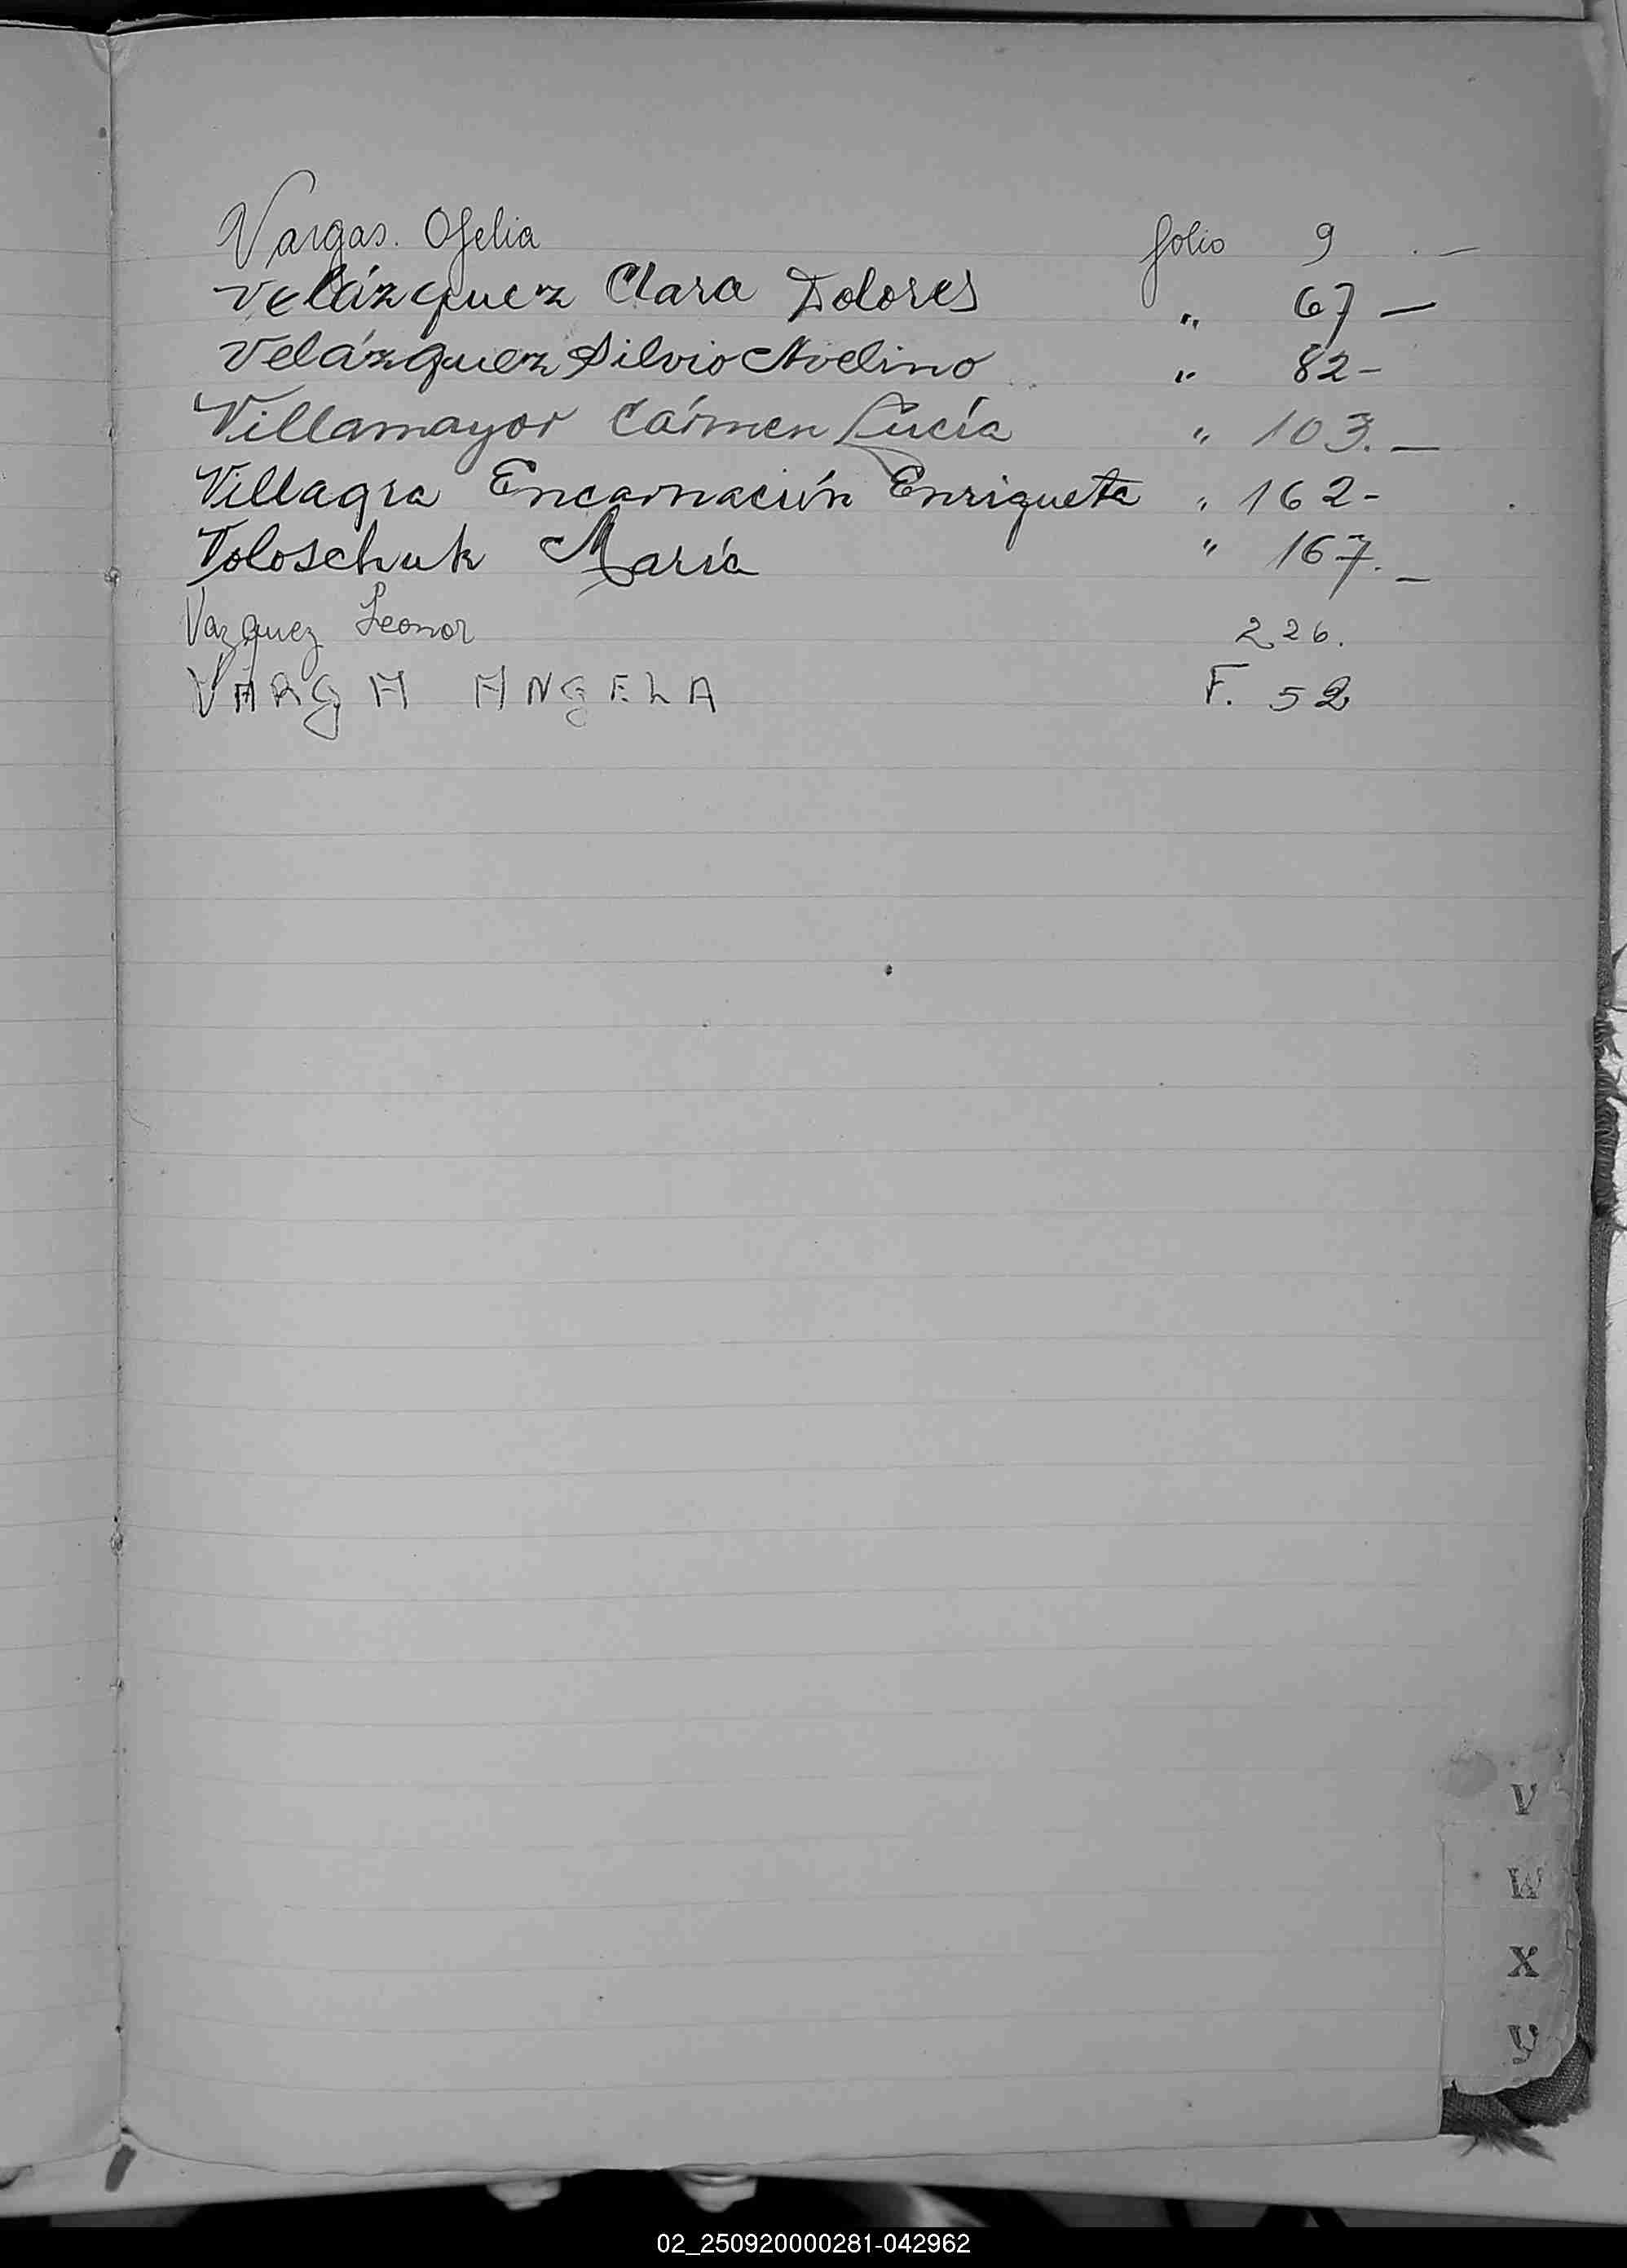 Vargas. Ofelia folio 9 . —
Velázquez Clara Dolores " 67 —
Velázquez Silvio Avelino " 82 -
Villamayor Cármen Lucía " 103. —
Villagra Encarnación Enriqueta " 162 -
Voloschuk María " 167. —
Vazquez Leonor 226.
VARGA ANGELA F. 52
V
W
X
Y
02_250920000281-042962